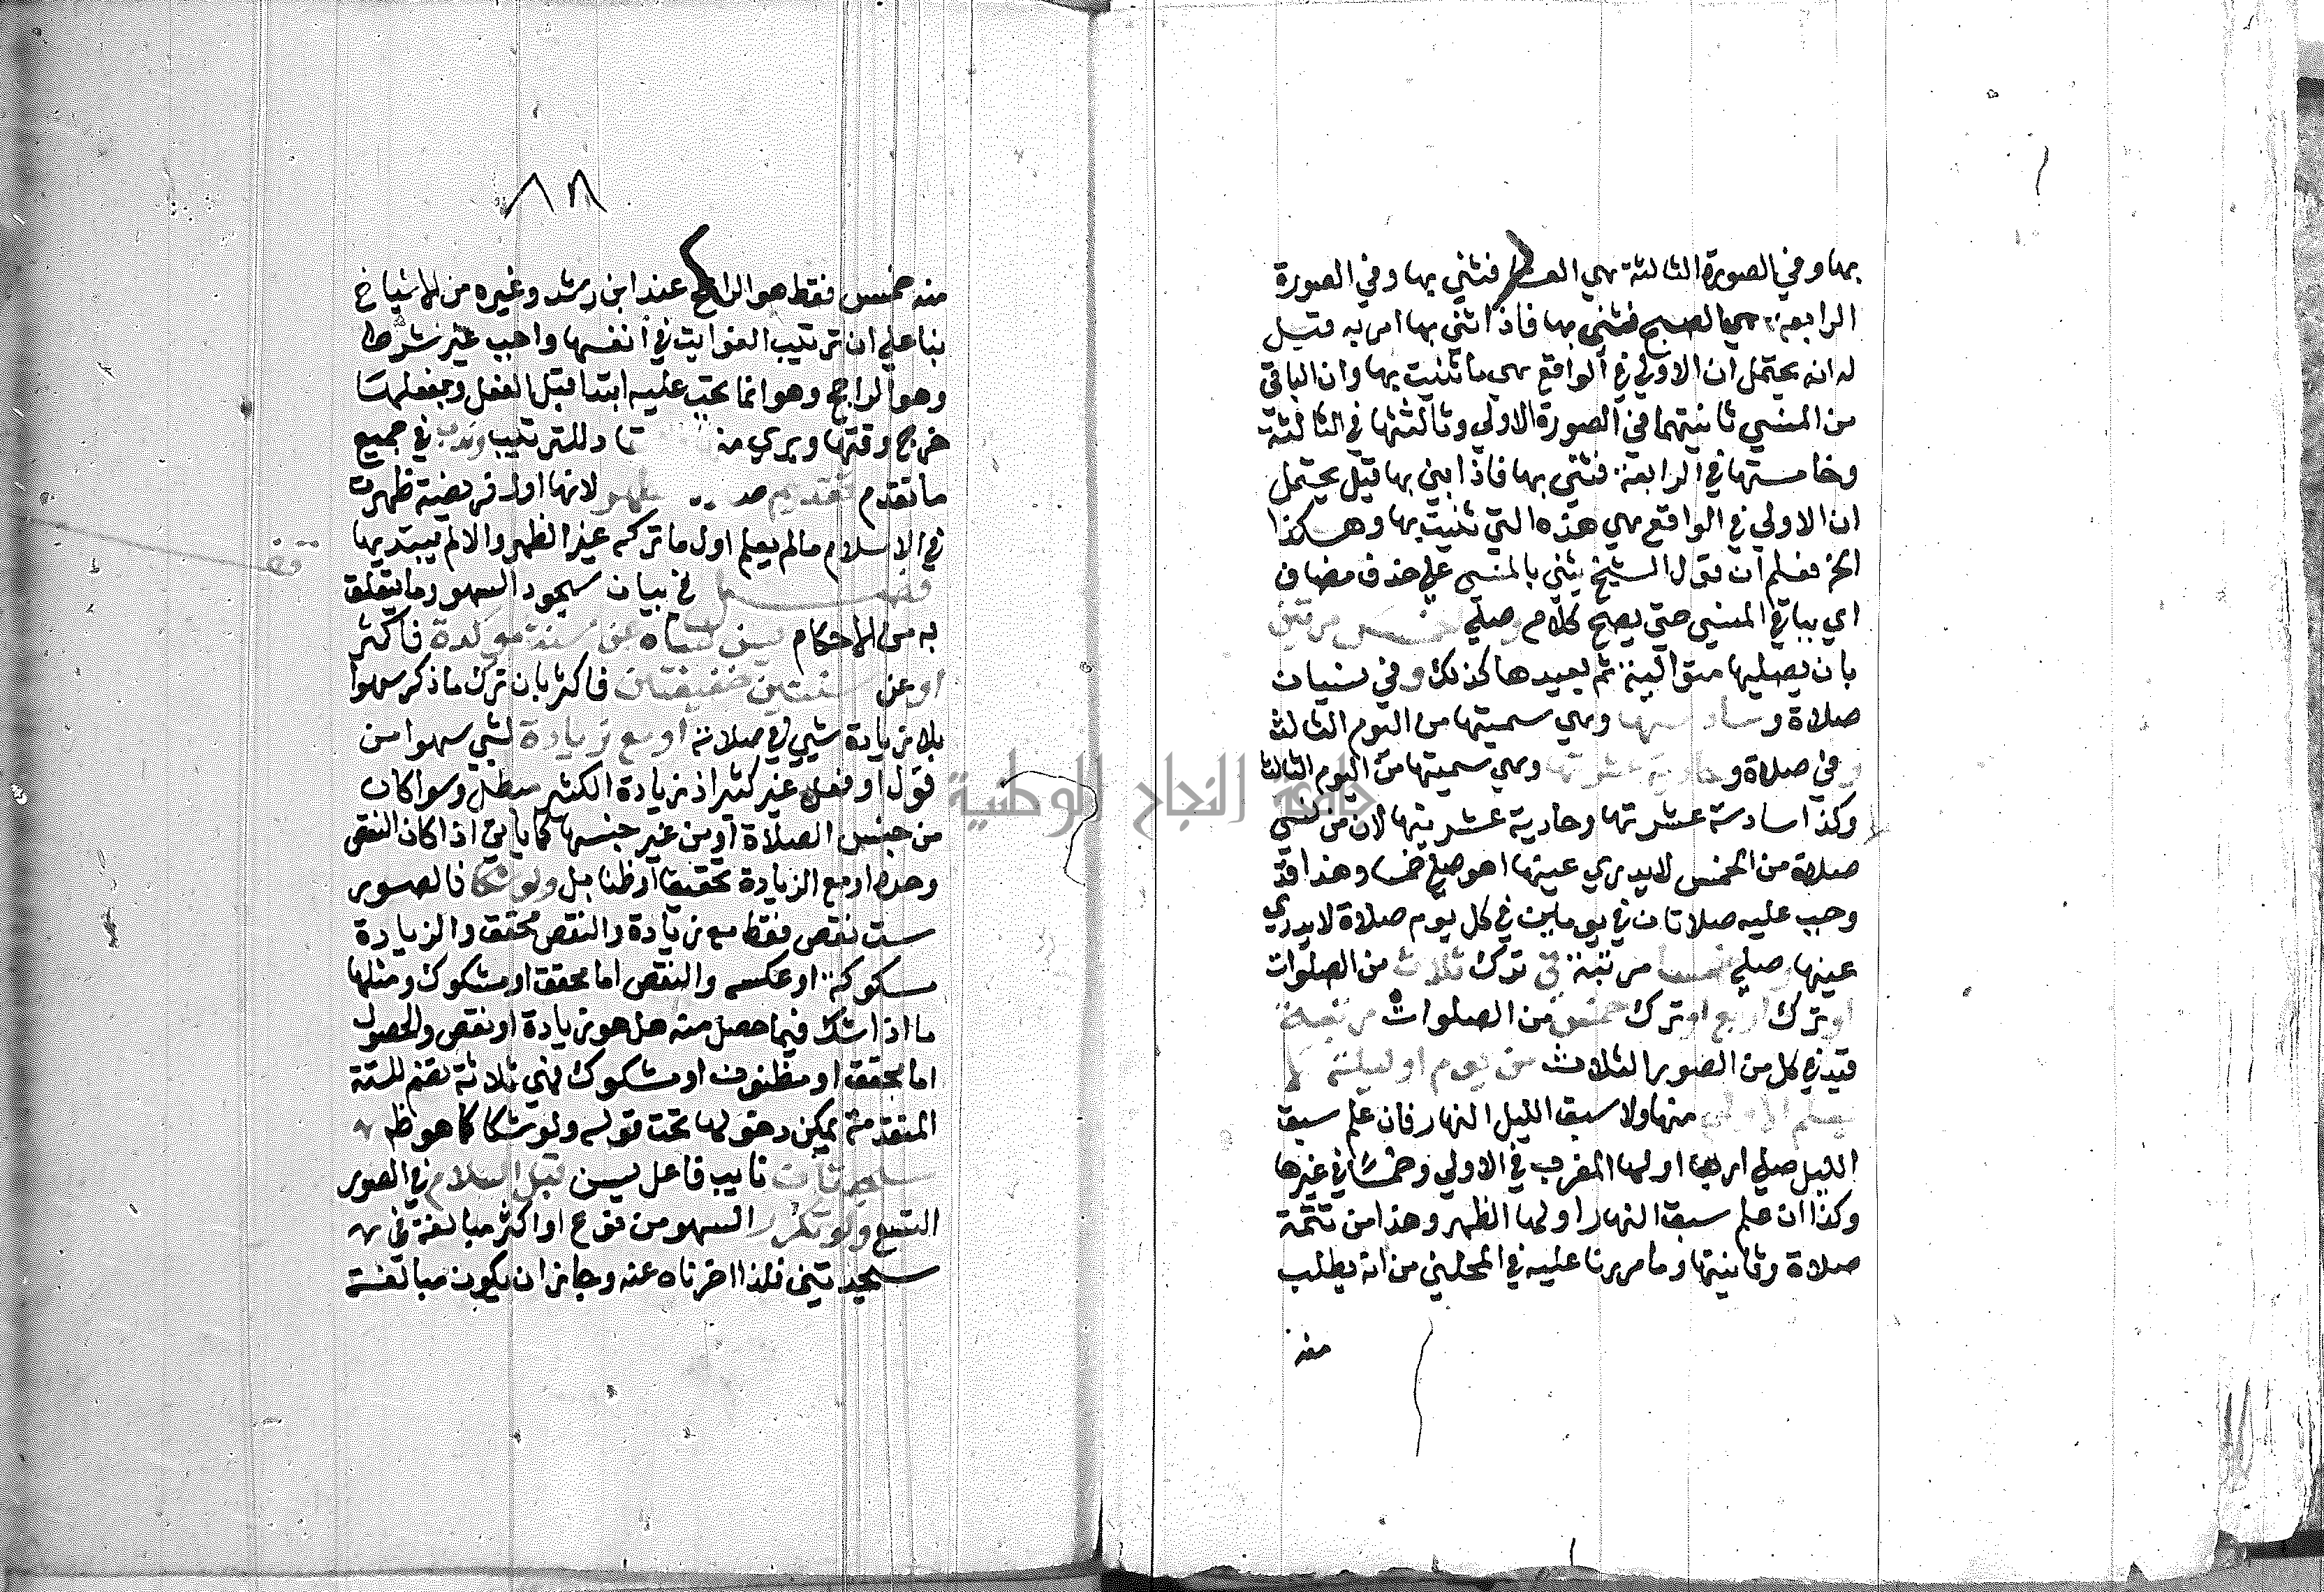 بها وفي الصورة الثالثة هي العصر فثني بها وفي الصورة
الرابعة هي الصبح فثني بها فاذا اثني بها امر به قيل
له انه يحتمل ان الاولي في الواقع هي ما ثنيت بها وان الباقي
من المنسي ثانيتهما في الصورة الاولي وثالثتها في الثالثة
وخامستها في الرابعة فثني بها فاذا بها قيل يحتمل
ان الاولي في الواقع هي هذه التي ثنيت بها وهكذا
الخ فعلم ان قول الشيخ يثني بالمنسي علي حذف مضاف
اي بباقي المنسي حتي يصح كلام وصلي الخمس مرتين
بان يصليها متوالية ثم يعيدها كذلك وفي نسيان
صلاة وسادستها وهي سميتها من اليوم الثالث
وفي صلاة وحادية عشرتها وهي سميتها من اليوم الثالث
وكذا سادسة عشرتها وحادية عشرينها لان من نسي
صلاة من الخمس لا يدري عينها صلي خمسا وهذا قد
وجب عليه صلاتان في يومين في كل يوم صلاة لا يدري
عينها وصلي خمسا مرتبة في ترك ثلاث من الصلوات
او ترك اربع او ترك خمس من الصلوات مرتبة
قيد في كل من الصور الثلاث من يوم او ليلة لا
يعلم الاولي منها ولا سبق الليل النهار فان علم سبق
الليل صلي اربعا اولها المغرب في الاولي وخمسا في غيرها
وكذا ان علم سبق النهار اولها الظهر وهذا من تتمة
صلاة وثانيتها وما مررنا عليه في المحلين من انه يطلب
منه
٨٨
منه خمس فقط هو الراجح عند ابن رشد وغيره من الاشياخ
بنا علي ان ترتيب الفوايت في انفسها واجب غير شرط
وهو الراجح وهو انما يجب عليه ابتدا قبل الفعل وبفعلها
خرج وقتها ويري منه للترتيب وندب في جميع
ما تقدم تقديم ظهر لانها اول فريضة ظهرت
في الاسلام ما لم يعلم اول ما تركه غير الظهر والا لم يبتد بها
قف
فصل في بيان سجود السهو وما يتعلق
به من الاحكام يسن لساه عن سنة موكدة فاكثر
او عن سنتين خفيفتين فاكثر بان ترك ما ذكر سهوا
بلا زيادة شي في صلاته او مع زيادة لشي سهوا من
قول او فعل غير كثير اذ زيادة الكثير مبطل وسوا كان
من جنس الصلاة او من غير جنسها كما ياتي اذا كان النقص
وحده او مع الزيادة تحقيقا او ظنا بل ولو شكا فالصور
ست نقص فقط مع زيادة والنقص محقق والزيادة
مشكوكة او عكسه والنقص اما محقق او مشكوك ومثلها
ما اذا شك فيما حصل منه هل هو زيادة او نقص والحصول
اما محقق او مظنون او مشكوك فهي ثلاثة تضم للستة
المتقدمة يمكن دخولها تحت قوله ولو شكا كما هو ظه
سجدتان نايب فاعل يسن قبل السلام في الصور
التسع ولو تكرر السهو من نوع او اكثر مبالغة في
سجدتين فلذا اخرناه عنه وجايز ان يكون مبالغة
جامعة النجاح الوطنية